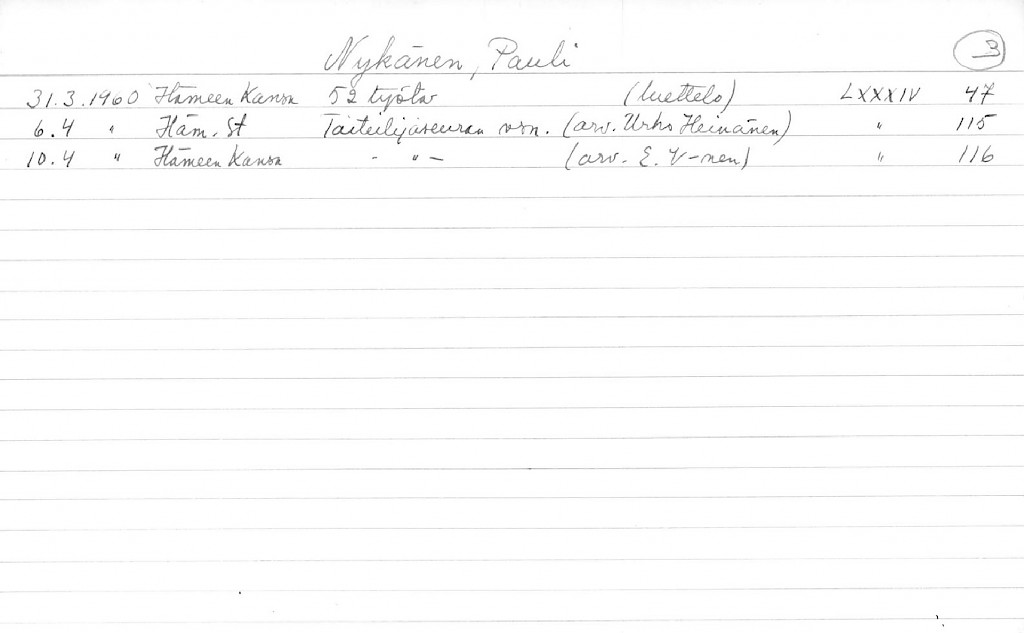 Nykänen, Pauli 3
31.3.1960 Hämeen Kansa 52 työtä (luettelo) LXXXIV 47
6.4 " Häm. St Taiteilijaseuran vsn. (arv. Urho Heinänen) " 115
10.4 " Hämeen Kansa - " - (arv. E. V-nen) " 116